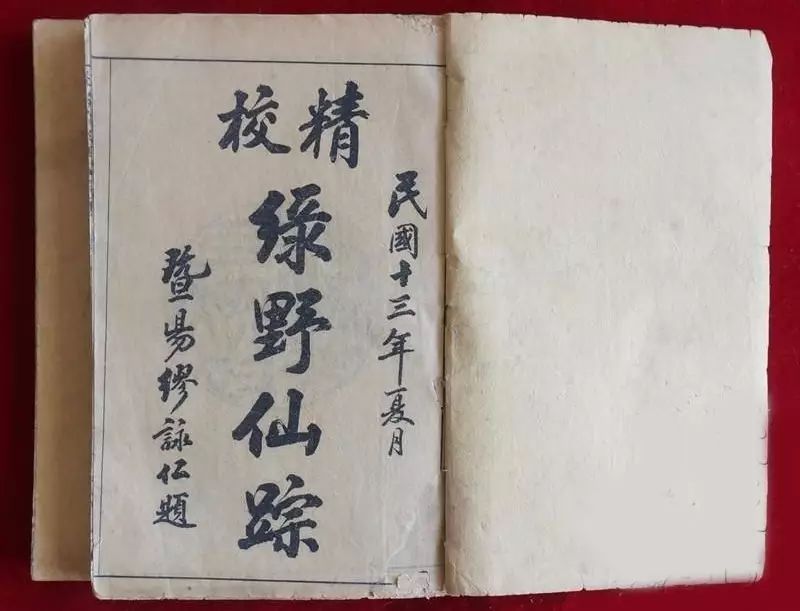 民國十三年夏月
精校
綠野仙踪
暨昜繆詠仁題